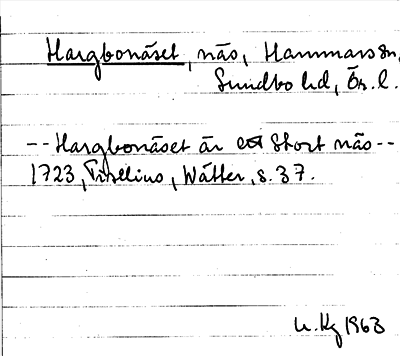 Hargbonäset, näs, Hammars sn,
Sundbo hd, Ör. l.
-- Hargbonäset är ett stort näs --
1723, Tiselius, Wätter, s. 37.
U. Kg 1963